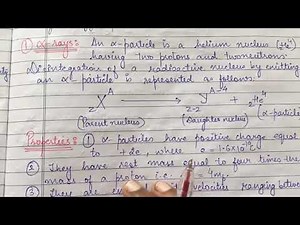 ① α-rays:- An α-particle is a helium nucleus (₂He⁴)
having two protons and two neutrons.
Disintegration of a radioactive nucleus by emitting
an α-particle is represented as follows:
zXᴬ → z-2Yᴬ⁻⁴ + ₂He⁴
(Parent nucleus) (Daughter nucleus) α-particle
Properties:- ① α-particles have positive charge equal
to +2e, where e = 1.6×10⁻¹⁹C
② They have rest mass equal to four times the
mass of a proton i.e. 4mp
③ They are velocities ranging between